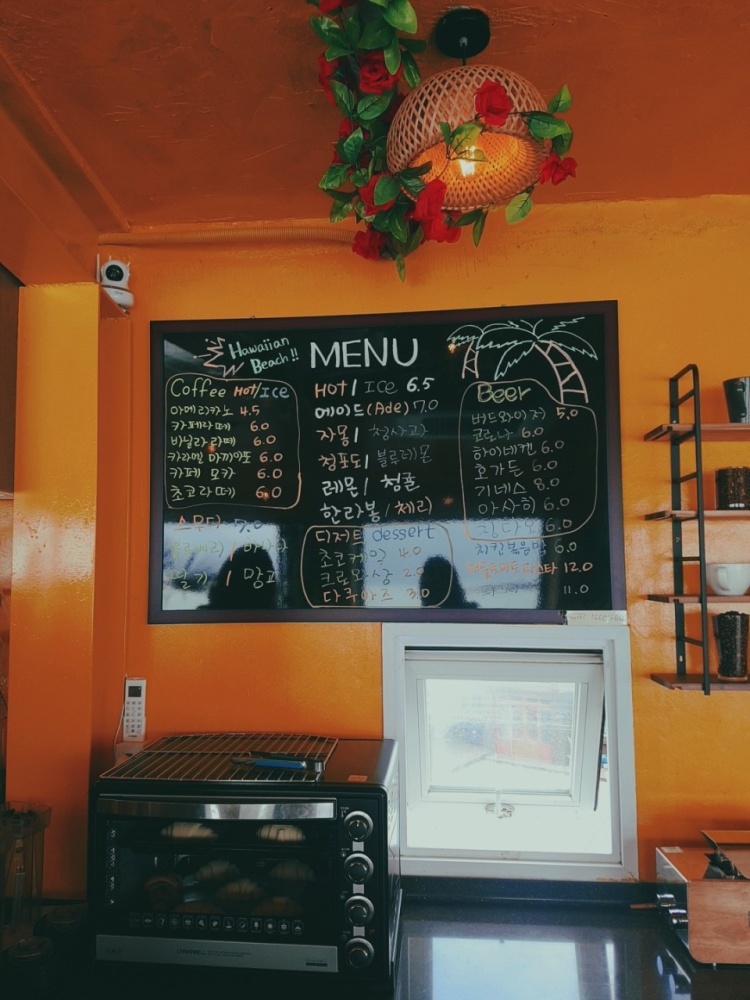 Hawaiian
Beach!!
MENU
Coffee HOT/ICE
아메리카노 4.5
카페라떼 6.0
바닐라라떼 6.0
카라멜 마끼아또 6.0
카페 모카 6.0
초코라떼 6.0
스무디 7.0
블루베리 /
딸기 / 망고
HOT / ICE 6.5
에이드(Ade) 7.0
자몽 / 청사과
청포도 / 블루레몬
레몬 / 청귤
한라봉 / 체리
디저트 dessert
초코케익 4.0
크로와상 2.0
다쿠아즈 3.0
Beer
버드와이저 5.0
코로나 6.0
하이네켄 6.0
호가든 6.0
기네스 8.0
아사히 6.0
칭따오 6.0
치킨볶음밥 6.0
파스타 12.0
11.0